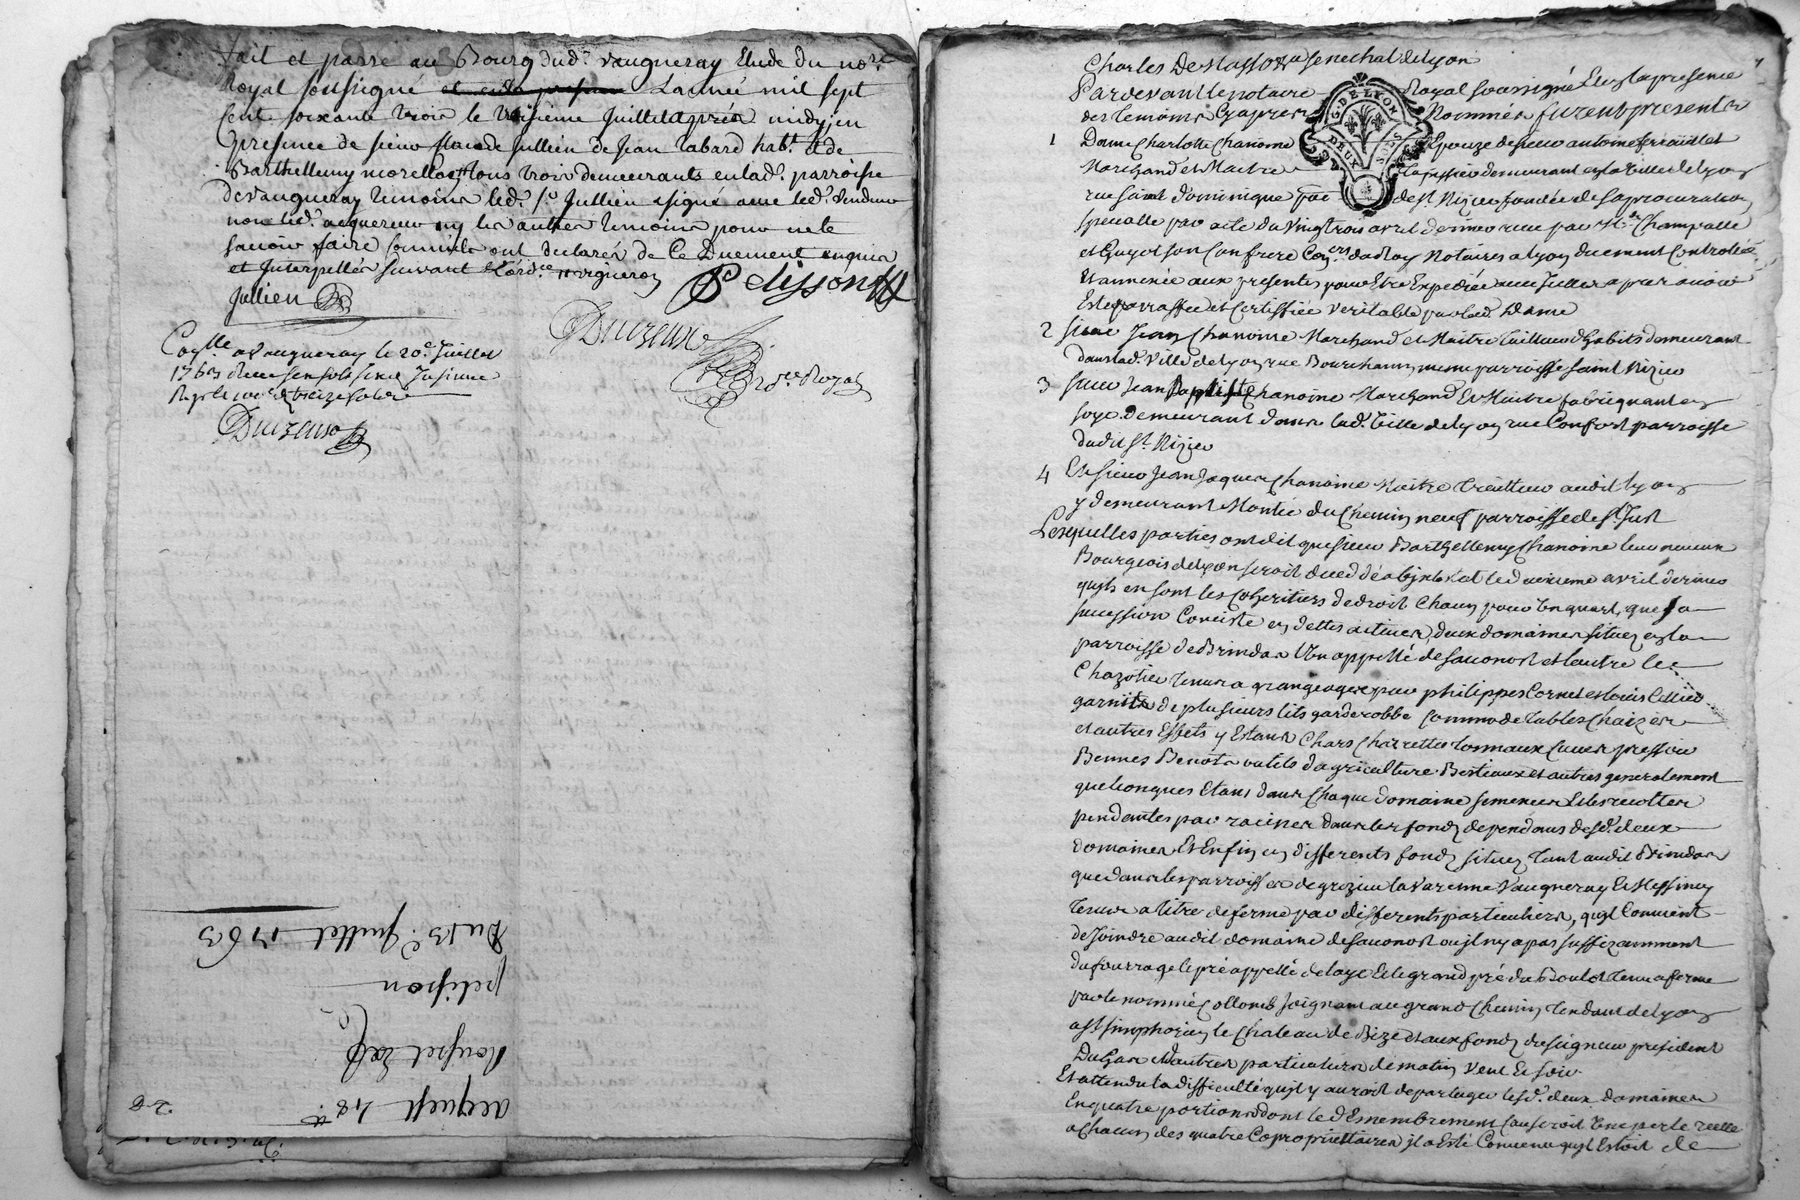 fait et passé au Bourg dud. Vaugneray Etude du no.re
Royal soussigné Lannée mil sept
Cent soixante trois le treisieme Juillet aprés midy en
presence de sieur Jullien de Jean tabard hab.t et de
Barthellemy morellon tous trois demeurants en lad. parroisse
de vaugneray temoins led. s.r Jullien a signé avec led. vendeur
non led. acquereur ny les autres temoins pour ne le
savoir faire comme ils ont declarés de ce Duement enquis
et Interpellés suivant Lord.ce
Jullien
Pelisson
Duizeux
no.re Royal
a Vaugneray le 20.e Juillet
1763
Du 13.e Juillet 1763
pelisson
acquest 48.tt
28
Charles De Masso senechal de Lyon
Pardevant le notaire Royal soussigné En la presence
des temoins Cy apres Nommés furent presents
G. DE LYON
DEUX SOLS
1 Dame Charlotte Chanoine Epouze de sieur antoine
Marchand et Maitre demeurant en la Ville de Lyon
rue saint dominique parr. de St Nizier fondée de sa procuration
specialle par acte du vingt trois avril dernier recu par M.e Champalle
et Guyot son Confrere Con.ers du Roy Notaires a Lyon duement Controllé
Et annexée aux presentes pour Etre Expediée avec icelles apres avoir
Eté parraffée et Certiffiée veritable par lad. Dame
2 sieur Jean Chanoine Marchand et Maitre tailleur d'habits demeurant
dans lad. ville de Lyon rue Bourchanin meme parroisse saint Nizier
3 sieur Jean Baptiste Chanoine Marchand Et Maitre fabriquant en
soye demeurant dans lad. ville de Lyon rue Confort parroisse
dudit St. Nizier
4 Et sieur Jean Jaques Chanoine Maitre traitteur audit Lyon
y demeurant Montée du Chemin neuf parroisse de St. Just
Lesquelles parties ont dit que sieur Barthellemy Chanoine leur neveux
Bourgeois de Lyon seroit decedé abintestat le deuxieme avril dernier
quils en sont les Coheritiers de droit Chacun pour un quart, que sa
succession Consiste en dettes actives, deux domaines situés en la
parroisse de Brindas L'un appellé de sauonost et l'autre les
Chazotier tenus a grangeage par philippes Cornet et Louis Cellier
garnits de plusieurs lits garderobbe Commode tables Chaizes
et autres Effets y Etants Chars Charrettes tonneaux Cuves pressoir
Bennes Benots outils d'agriculture Bestiaux et autres generalement
quelconques Etans dans Chaque domaine semences Et les recoltes
pendantes par racines dans les fonds dependans desd. deux
domaines Et Enfin en differents fonds situés tant audit Brindas
que dans les parroisses de grezieu la Varenne Vaugneray Et Messimy
tenus a titre de ferme par differents particuliers, quil Convient
de Joindre audit domaine de sauonost ou il ny a pas suffizamment
du fourrage le pré appellé de laye Et le grand pré du Boulot tenu a ferme
par le nommé Collomb Joignant au grand Chemin tendant de Lyon
a St simphorien le Chateau de Bize et aux fonds du seigneur president
Dugas et d'autres particuliers de matin Vent Et soir
Et attendu la difficulté quil y auroit de partager lesd. deux domaines
En quatre portions dont le d'Emembrement Causeroit Une perte réelle
a Chacun des quatre Coproprietaires il a Eté Convenu quil Estoit de